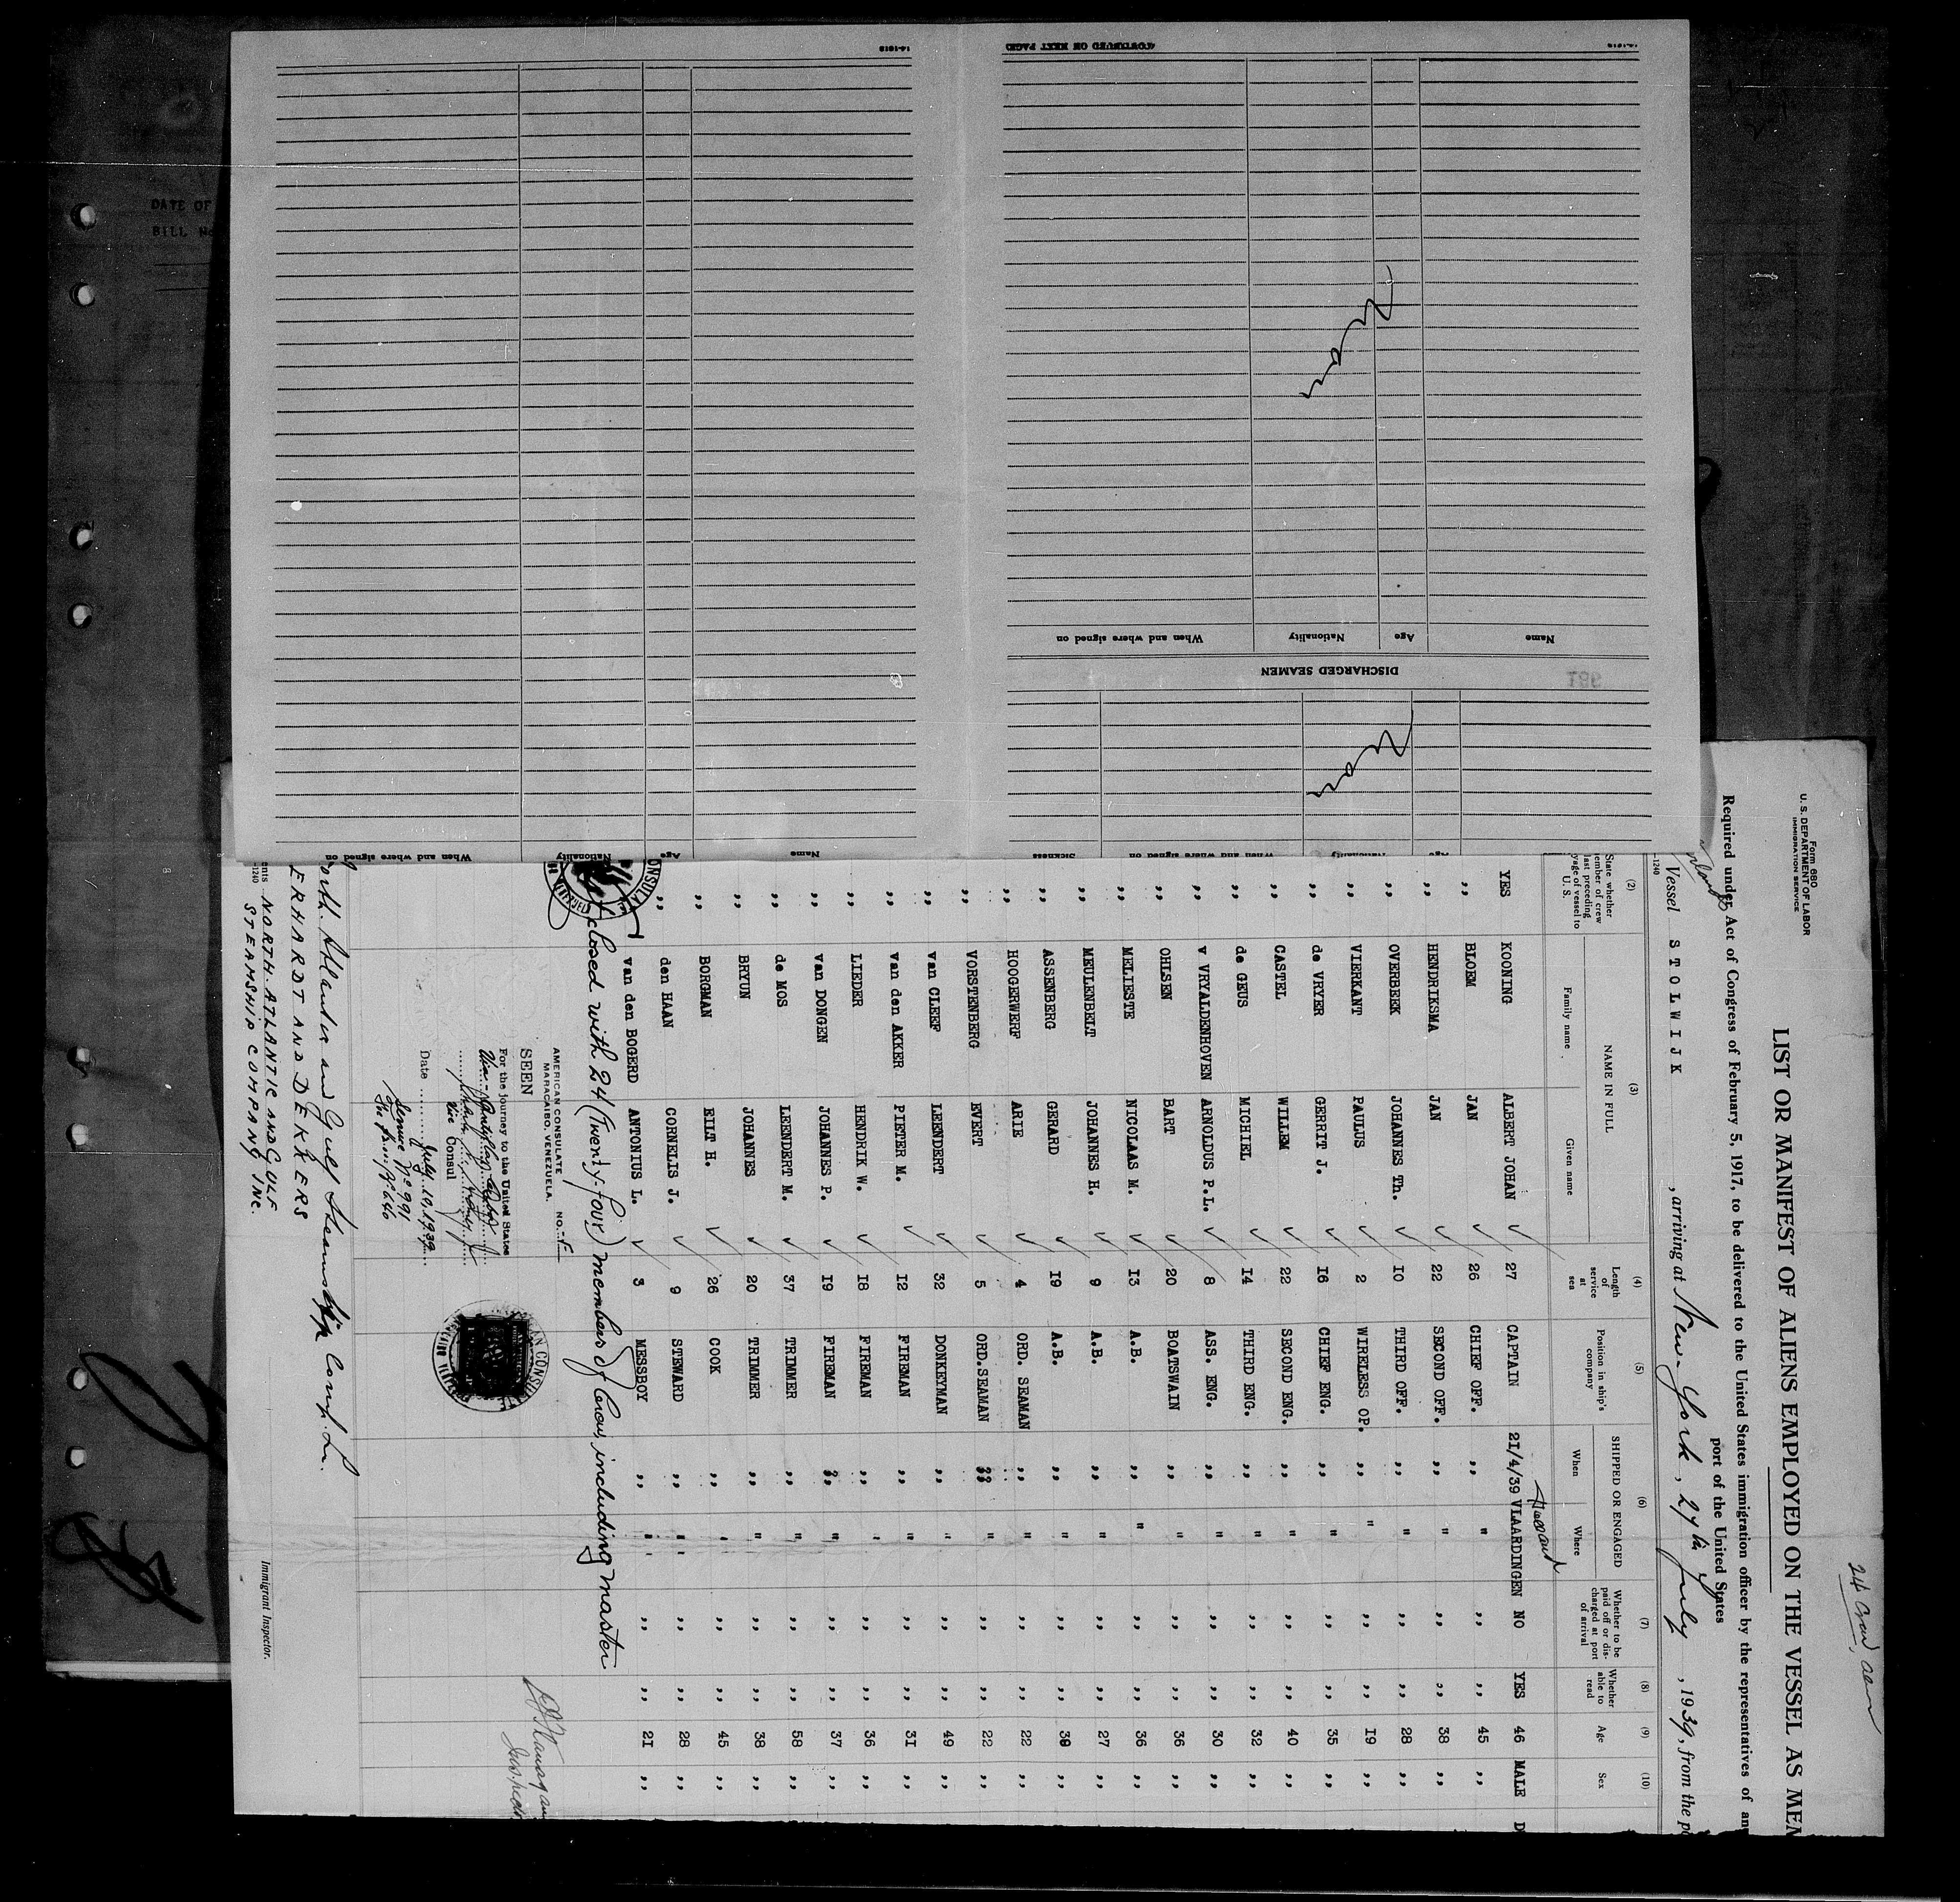 24 crew,
Form 680
U. S. DEPARTMENT OF LABOR
IMMIGRATION SERVICE
LIST OR MANIFEST OF ALIENS EMPLOYED ON THE VESSEL AS MEM
Required under Act of Congress of February 5, 1917, to be delivered to the United States immigration officer by the representatives of any
port of the United States
Vessel STOLWIJK , arriving at New-York, 27th July , 1939, from the p
(2) (3) (4) (5) (6) (7) (8) (9) (10)
State whether member of crew last preceding voyage of vessel to U. S. NAME IN FULL Family name Given name Length of service at sea Position in ship's company SHIPPED OR ENGAGED When Where Whether to be paid off or discharged at port of arrival Whether able to read Age Sex
Holland
YES KOONING ALBERT JOHAN 27 CAPTAIN 21/4/39 VLAARDINGEN NO YES 46 MALE D
,, BLOEM JAN 26 CHIEF OFF. ,, " ,, ,, 45 ,,
,, HENDRIKSMA JAN 22 SECOND OFF. ,, " ,, ,, 38 ,,
,, OVERBEEK JOHANNES Th. 10 THIRD OFF. ,, " ,, ,, 28 ,,
,, VIERKANT PAULUS 2 WIRELESS OP. ,, " ,, ,, 19 ,,
,, de VRYER GERRIT J. 16 CHIEF ENG. ,, " ,, ,, 35 ,,
,, CASTEL WILLEM 22 SECOND ENG. ,, " ,, ,, 40 ,,
,, de GEUS MICHIEL 14 THIRD ENG. ,, " ,, ,, 32 ,,
,, v VRYALDENHOVEN ARNOLDUS P.L. 8 ASS. ENG. ,, " ,, ,, 30 ,,
,, OHLSEN BART 20 BOATSWAIN ,, " ,, ,, 36 ,,
,, MELIESTE NICOLAAS M. 13 A.B. ,, " ,, ,, 36 ,,
,, MEULENBELT JOHANNES H. 9 A.B. ,, " ,, ,, 27 ,,
,, ASSENBERG GERARD 19 A.B. ,, " ,, ,, 39 ,,
,, HOOGERWERF ARIE 4 ORD. SEAMAN ,, " ,, ,, 22 ,,
,, VORSTENBERG EVERT 5 ORD.SEAMAN ,, " ,, ,, 22 ,,
,, van CLEEF LEENDERT 32 DONKEYMAN ,, " ,, ,, 49 ,,
,, van den AKKER PIETER M. 12 FIREMAN ,, " ,, ,, 31 ,,
,, LIEDER HENDRIK W. 18 FIREMAN ,, " ,, ,, 36 ,,
,, van DONGEN JOHANNES P. 19 FIREMAN ,, " ,, ,, 37 ,,
,, de MOS LEENDERT M. 37 TRIMMER ,, " ,, ,, 58 ,,
,, BRYUN JOHANNES 20 TRIMMER ,, " ,, ,, 38 ,,
,, BORGMAN EILT H. 26 COOK ,, " ,, ,, 45 ,,
,, den HAAN CORNELIS J. 9 STEWARD ,, " ,, ,, 28 ,,
van den BOGERD ANTONIUS L. 3 MESSBOY ,, " ,, ,, 21 ,,
closed with 24 (Twenty-four) members of Crew, including master
AMERICAN CONSULATE
MARACAIBO, VENEZUELA.
SEEN
For the journey to the United States
Vice Consul
Date July 10, 1939
Service No 991
North Atlantic and Gulf Steamship Comp. Ln.
ERHARDT AND DEKKERS
NORTH. ATLANTIC AND GULF
STEAMSHIP COMPANY INC.
Immigrant Inspector.
14-1240
Name Age Nationality When and where signed on
Name Age Nationality When and where signed on Sickness
DISCHARGED SEAMEN
186
Name Age Nationality When and where signed on
(CONTINUED ON NEXT PAGE)
DATE OF
BILL No